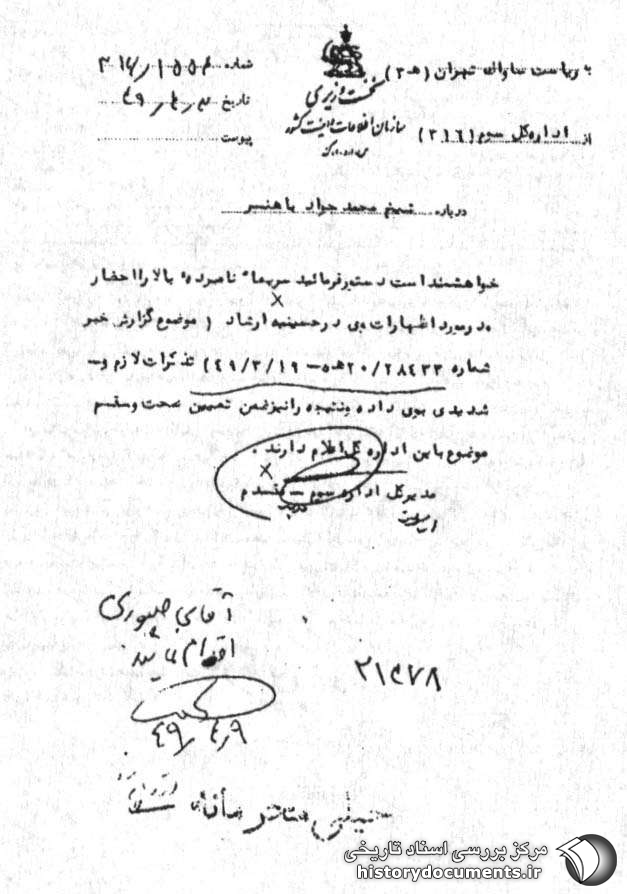 به ریاست ساواک تهران (ه‍ ۳)
از اداره کل سوم (۳۱۶)
نخست وزیری
سازمان اطلاعات و امنیت کشور
شماره
تاریخ
پیوست
درباره شیخ محمد جواد باهنر
خواهشمند است دستور فرمائید سریعا" نامبرده بالا را احضار
و در مورد اظهارات وی در حسینیه ارشاد (موضوع گزارش خبر
شماره ۲۰/۲۸۴۳۳ ه‍ ۵ - ۴۹/۳/۱۹) تذکرات لازم و
شدیدی بوی داده و نتیجه را نیز ضمن تعیین صحت و سقم
موضوع باین اداره کل اعلام دارند.
مدیر کل اداره سوم - مقدم
آقای
اقدام
۴۹/۴/۹
مرکز بررسی اسناد تاریخی
historydocuments.ir